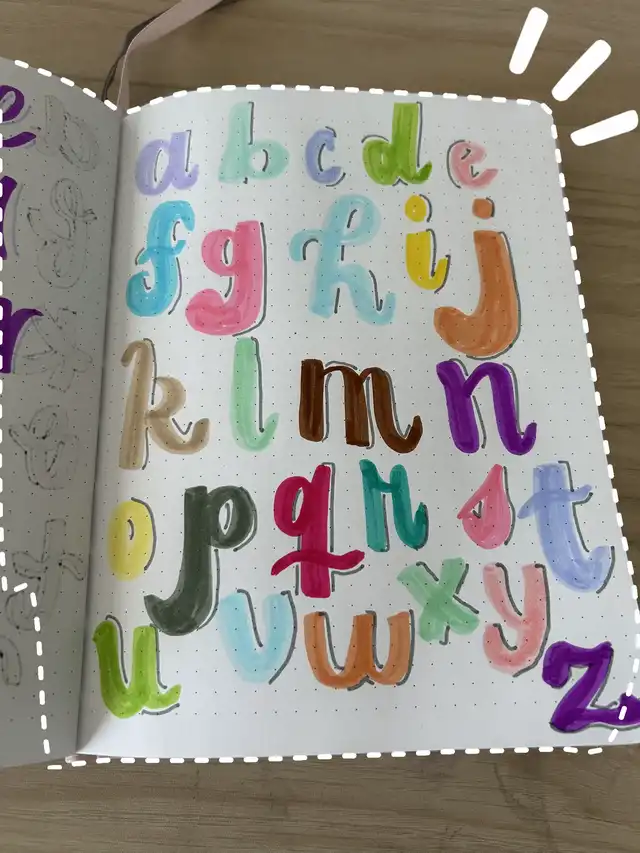 a b c d e
f g h i j
k l m n
o p q r s t
u v w x y z